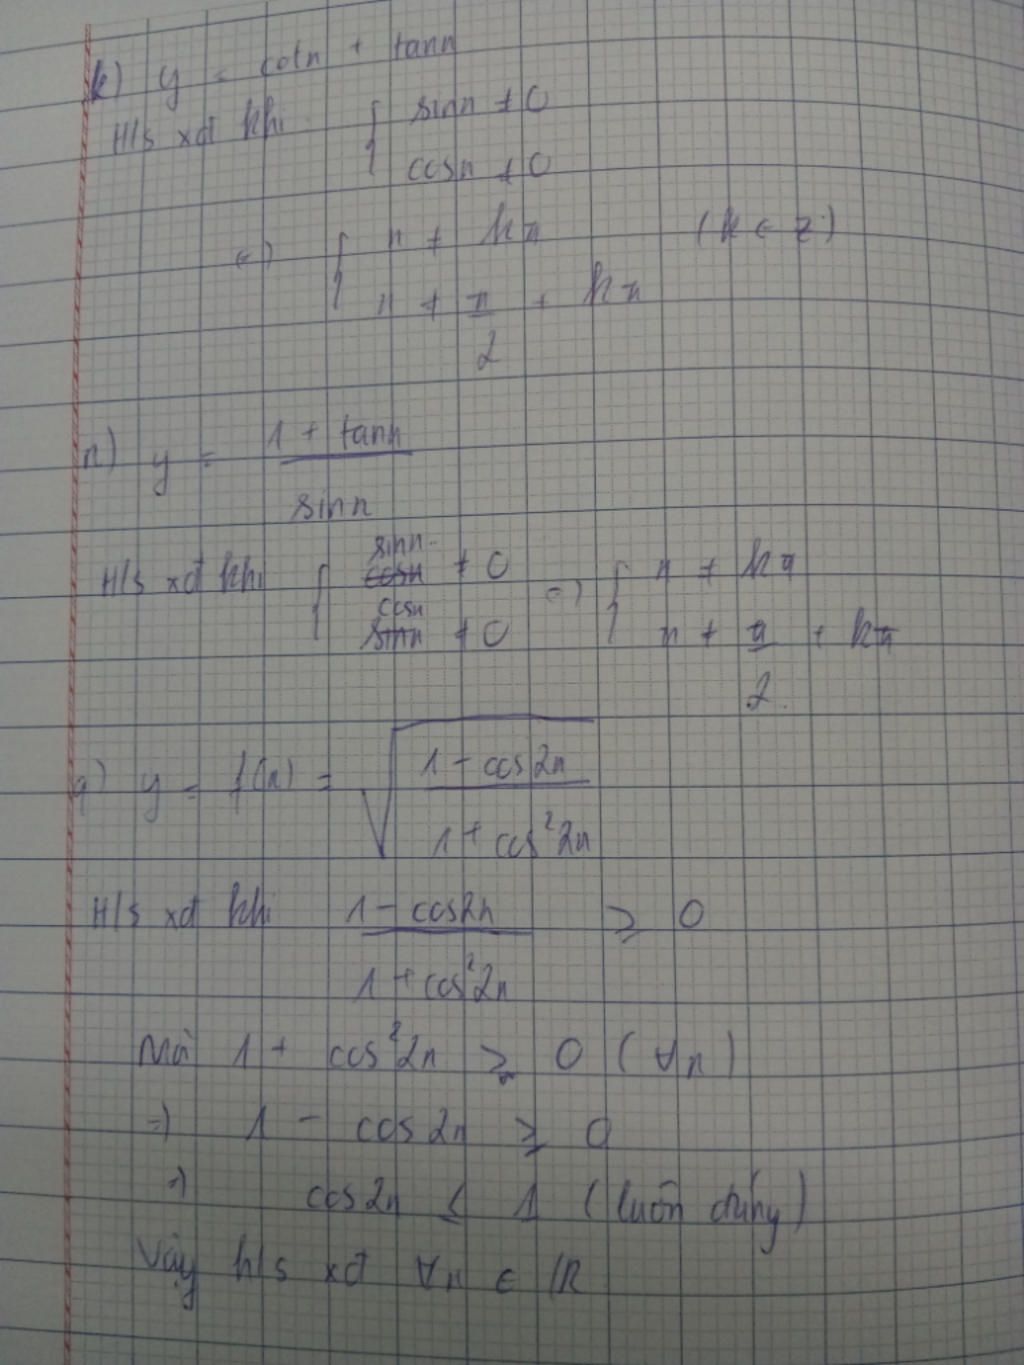 k) y = cotx + tanx
H/s xđ khi { sinx ≠ 0
cosx ≠ 0
<=> { x ≠ kπ (k ∈ Z)
x ≠ π/2 + kπ
n) y = (1 + tanx)/sinx
H/s xđ khi { sinx ≠ 0 => { x ≠ kπ
cosx ≠ 0 x ≠ π/2 + kπ
q) y = f(x) = √((1 - cos2x)/(1 + cos²2x))
H/s xđ khi (1 - cos2x)/(1 + cos²2x) ≥ 0
Mà 1 + cos²2x ≥ 0 (∀x)
=) 1 - cos2x ≥ 0
=) cos2x ≤ 1 (luôn đúng)
Vậy h/s xđ ∀x ∈ R